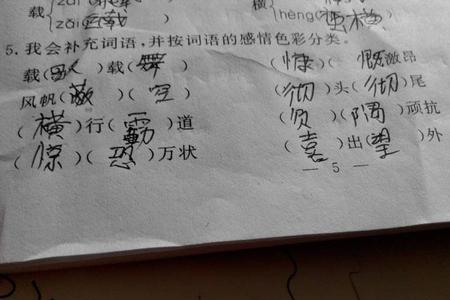 载 zài(运载 横 hèng(蛮横
5.我会补充词语,并按词语的感情色彩分类。
载(歌)载(舞) (慷 慨激昂
风帆(蔽)(空) (彻)头(彻)尾
(横)行(霸)道 (负)(隅)顽抗
(惊)(恐)万状 (喜)出(望)外
— 5 —